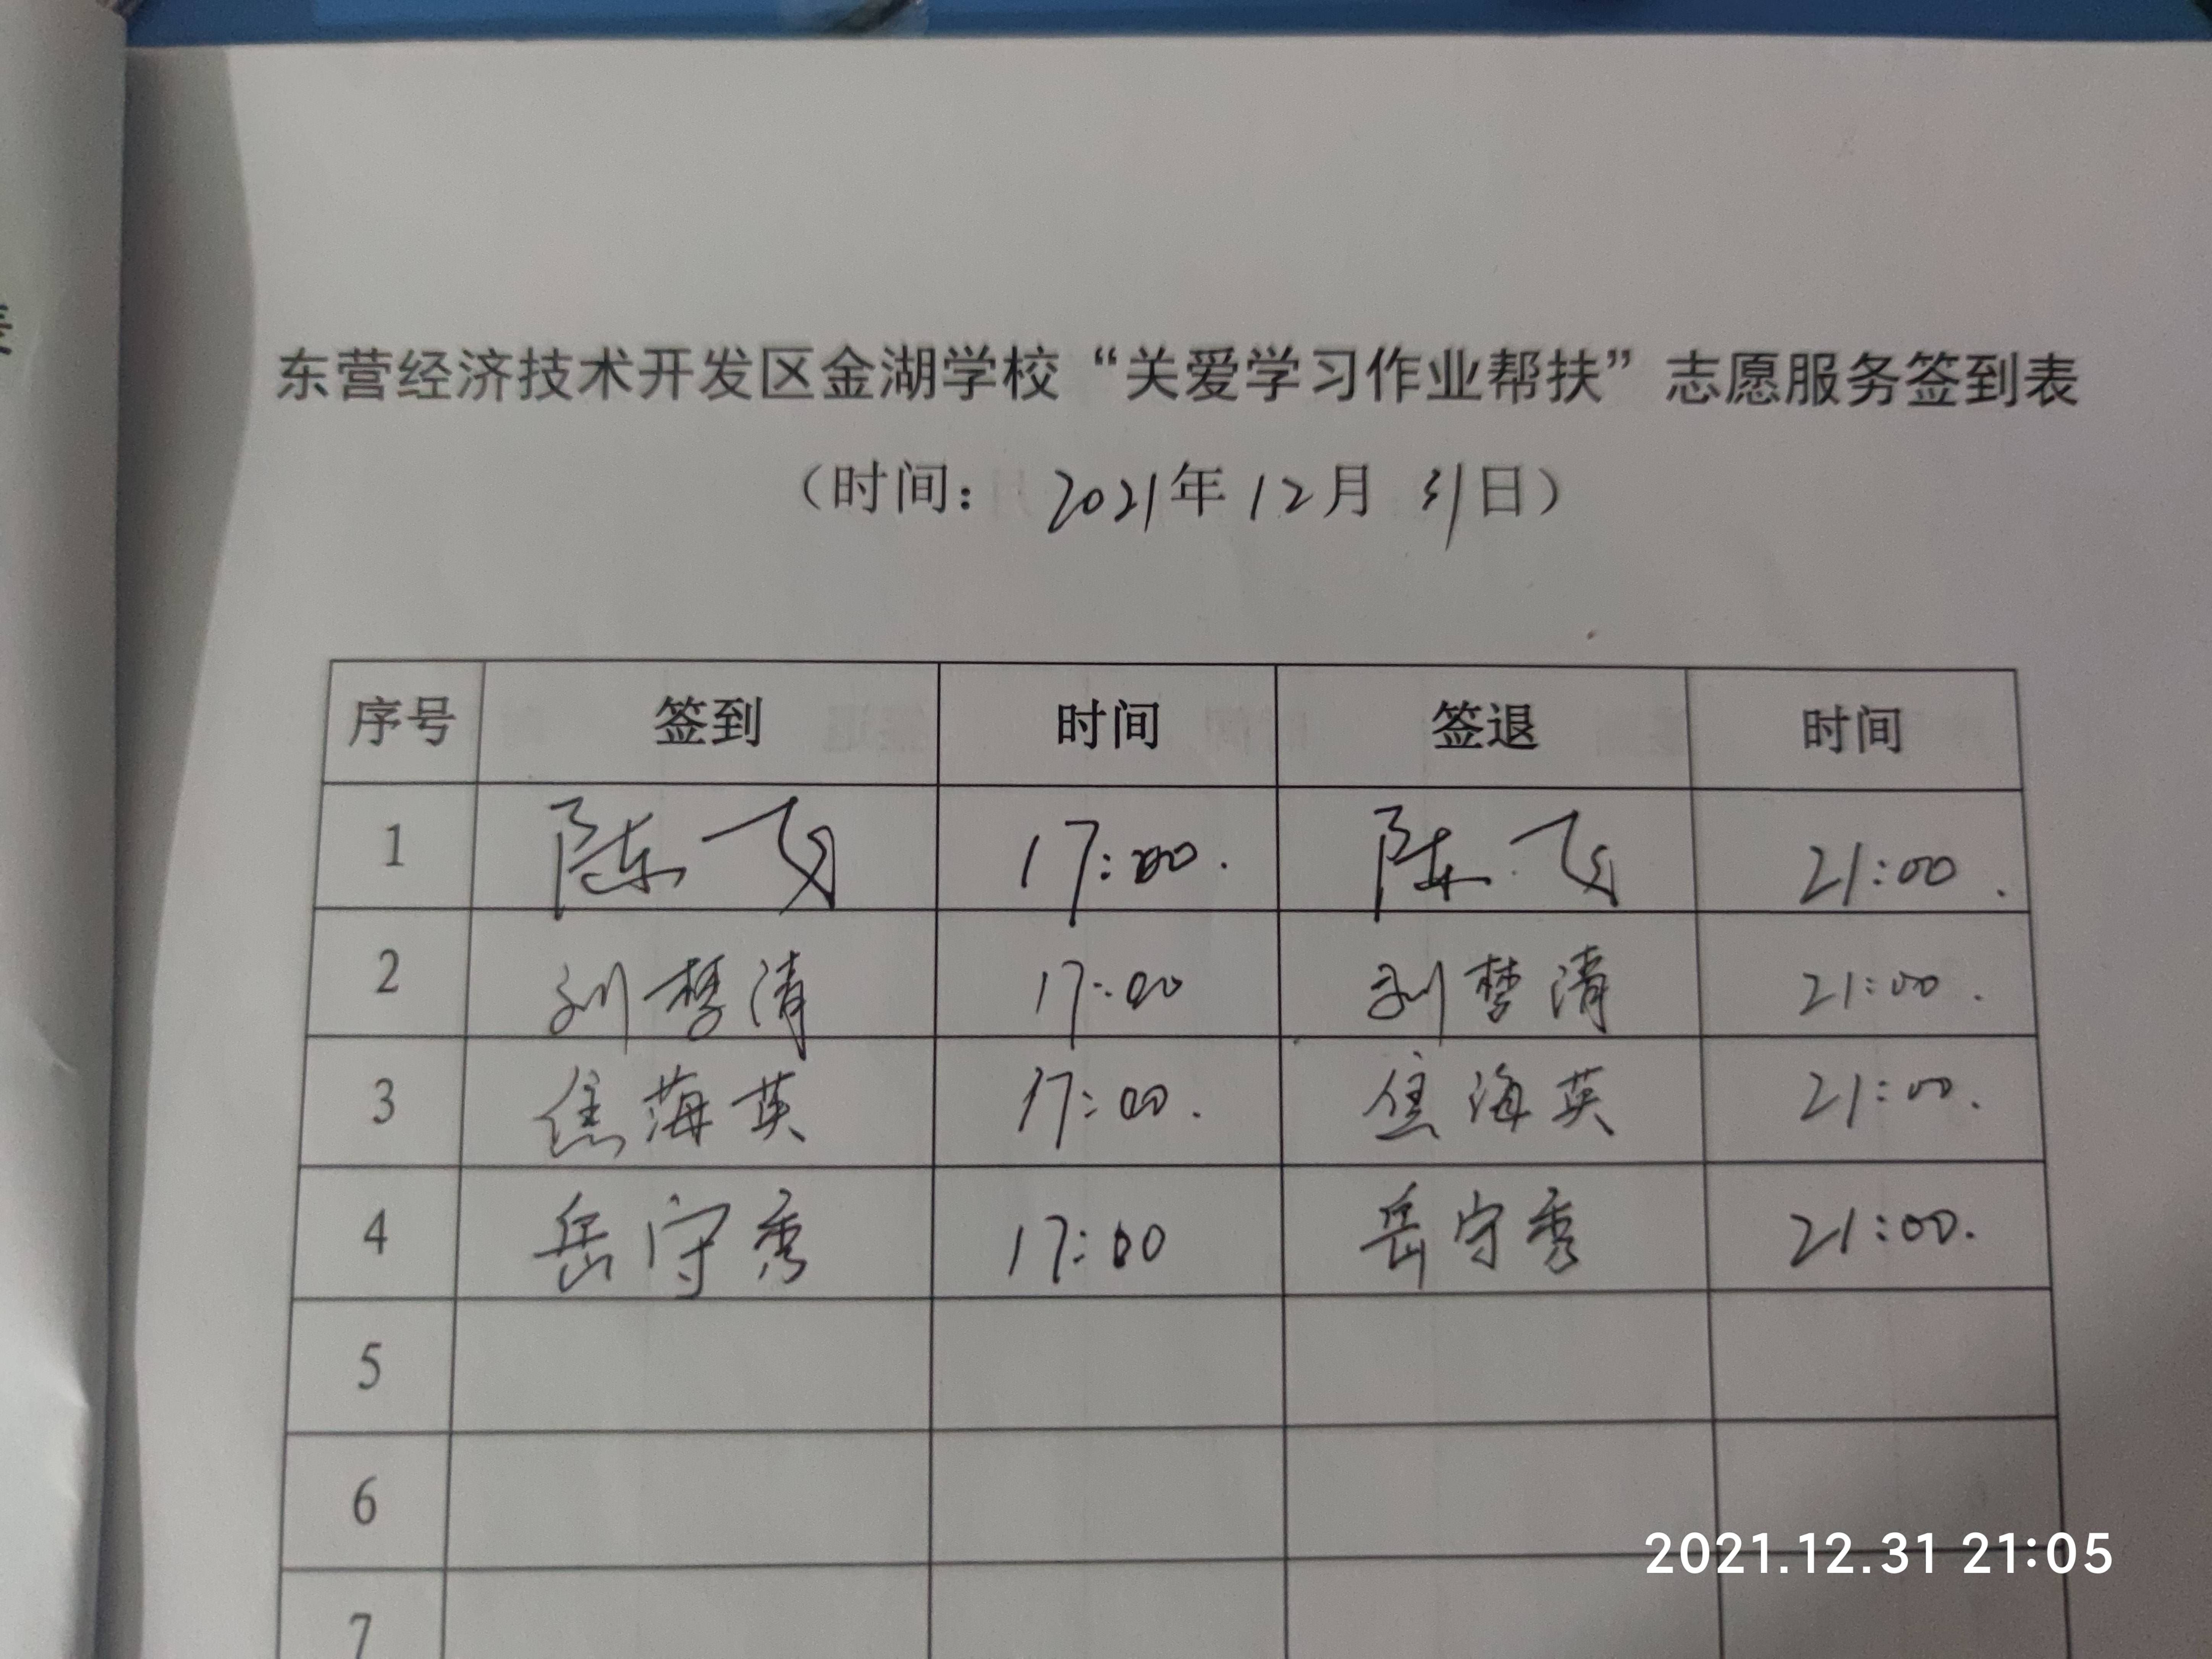 东营经济技术开发区金湖学校“关爱学习作业帮扶”志愿服务签到表
（时间： 2021年12月31日）
序号 签到 时间 签退 时间
1 陈飞 17:00. 陈飞 21:00.
2 刘梦清 17:00 刘梦清 21:00.
3 焦海英 17:00. 焦海英 21:00.
4 岳守秀 17:00 岳守秀 21:00.
5
6
7
2021.12.31 21:05